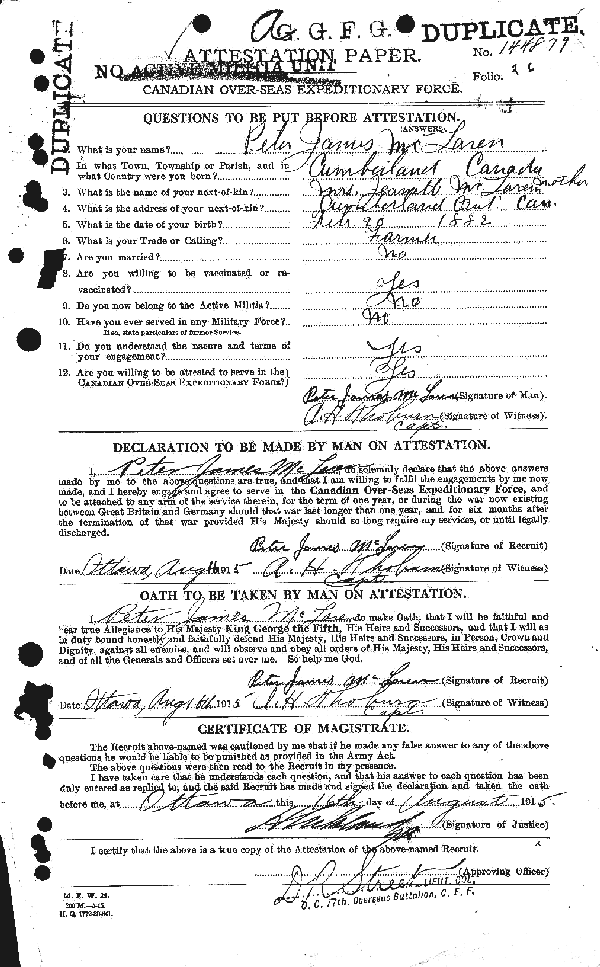 A G. G. F. G. DUPLICATE.
DUPLICATE
ATTESTATION PAPER. No. 144879
NO ACTIVE MILITIA UNIT Folio.
CANADIAN OVER-SEAS EXPEDITIONARY FORCE.
QUESTIONS TO BE PUT BEFORE ATTESTATION.
(ANSWERS)
1. What is your name? Peter James McLaren
2. In what Town, Township or Parish, and in Cumberland Canada
what Country were you born?
3. What is the name of your next-of-kin? Mrs. McLaren Mother
4. What is the address of your next-of-kin? Cumberland Ont Can
5. What is the date of your birth? 1882
6. What is your Trade or Calling? Farmer
7. Are you married? No
8. Are you willing to be vaccinated or re-
vaccinated? Yes
9. Do you now belong to the Active Militia? No
10. Have you ever served in any Military Force? No
If so, state particulars of former Service.
11. Do you understand the nature and terms of
your engagement? Yes
12. Are you willing to be attested to serve in the Yes
CANADIAN OVER-SEAS EXPEDITIONARY FORCE?
Peter James McLaren (Signature of Man).
A H (Signature of Witness).
Capt.
DECLARATION TO BE MADE BY MAN ON ATTESTATION.
I, Peter James McLaren, do solemnly declare that the above answers
made by me to the above questions are true, and that I am willing to fulfil the engagements by me now
made, and I hereby engage and agree to serve in the Canadian Over-Seas Expeditionary Force, and
to be attached to any arm of the service therein, for the term of one year, or during the war now existing
between Great Britain and Germany should that war last longer than one year, and for six months after
the termination of that war provided His Majesty should so long require my services, or until legally
discharged.
Peter James McLaren (Signature of Recruit)
Date Ottawa, Aug 1915 A. H. (Signature of Witness)
Capt
OATH TO BE TAKEN BY MAN ON ATTESTATION.
I, Peter James McLaren, do make Oath, that I will be faithful and
bear true Allegiance to His Majesty King George the Fifth, His Heirs and Successors, and that I will as
in duty bound honestly and faithfully defend His Majesty, His Heirs and Successors, in Person, Crown and
Dignity, against all enemies, and will observe and obey all orders of His Majesty, His Heirs and Successors,
and of all the Generals and Officers set over me. So help me God.
Peter James McLaren (Signature of Recruit)
Date Ottawa Aug 1915 A. H. (Signature of Witness)
Capt.
CERTIFICATE OF MAGISTRATE.
The Recruit above-named was cautioned by me that if he made any false answer to any of the above
questions he would be liable to be punished as provided in the Army Act.
The above questions were then read to the Recruit in my presence.
I have taken care that he understands each question, and that his answer to each question has been
duly entered as replied to, and the said Recruit has made and signed the declaration and taken the oath
before me, at Ottawa this 16th day of August 1915
(Signature of Justice)
I certify that the above is a true copy of the Attestation of the above-named Recruit.
Street (Approving Officer)
LIEUT. COL.
O. C. 77th. Overseas Battalion, C. E. F.
M. F. W. 23.